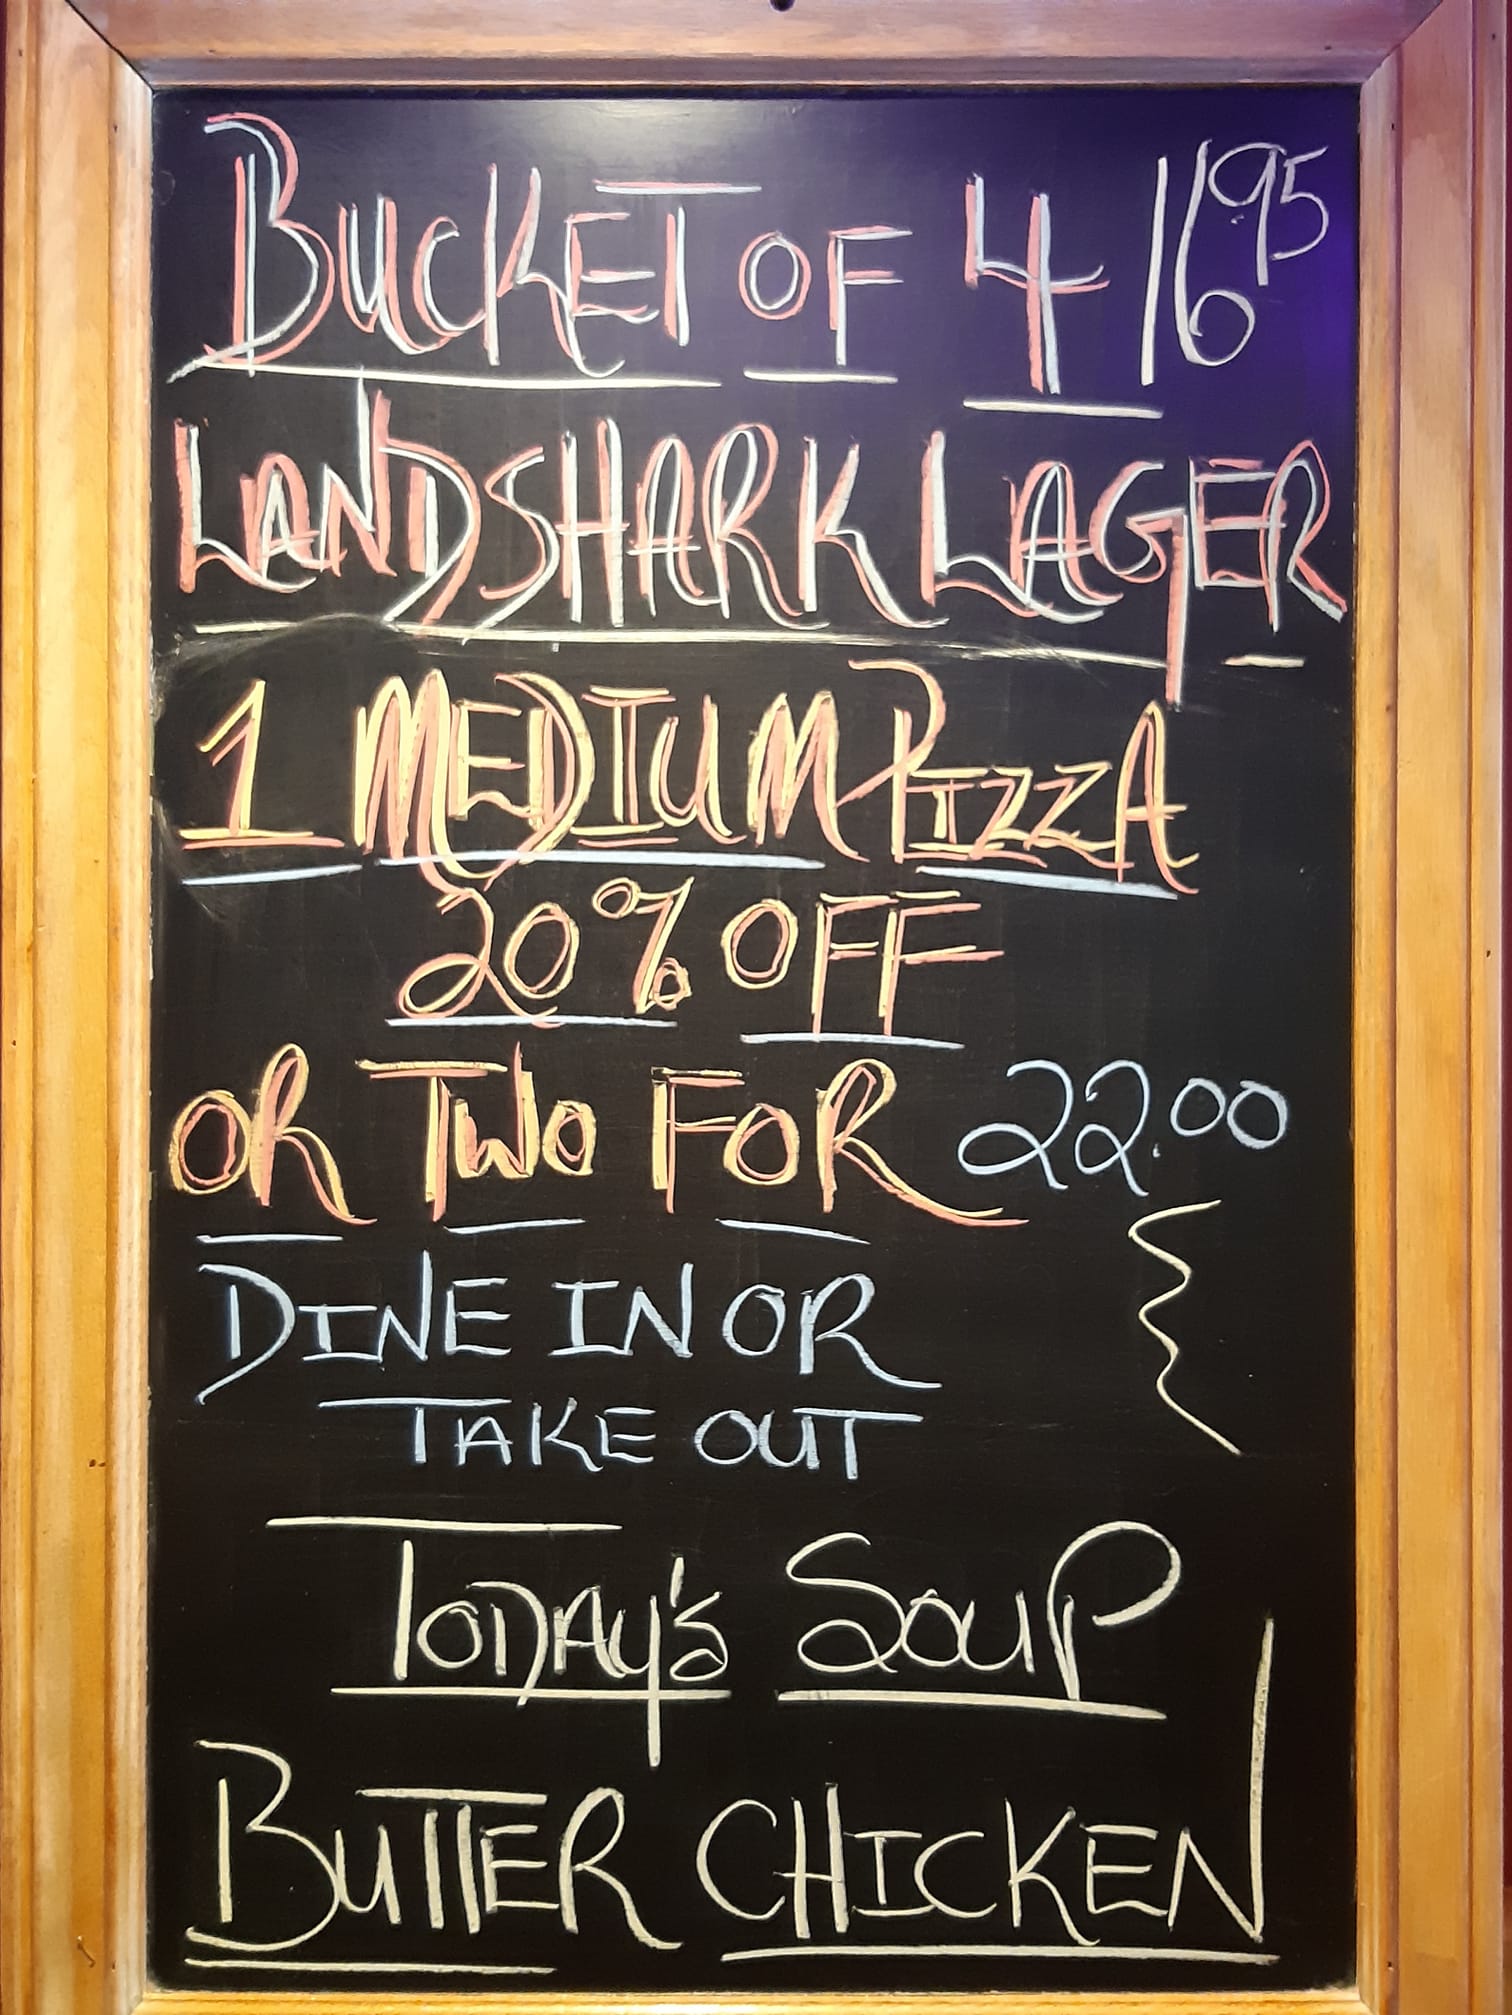 BUCKET OF 4 16 95
LANDSHARK LAGER
1 MEDIUM PIZZA
20% OFF
OR TWO FOR 22.00
DINE IN OR
TAKE OUT
TODAY'S SOUP
BUTTER CHICKEN